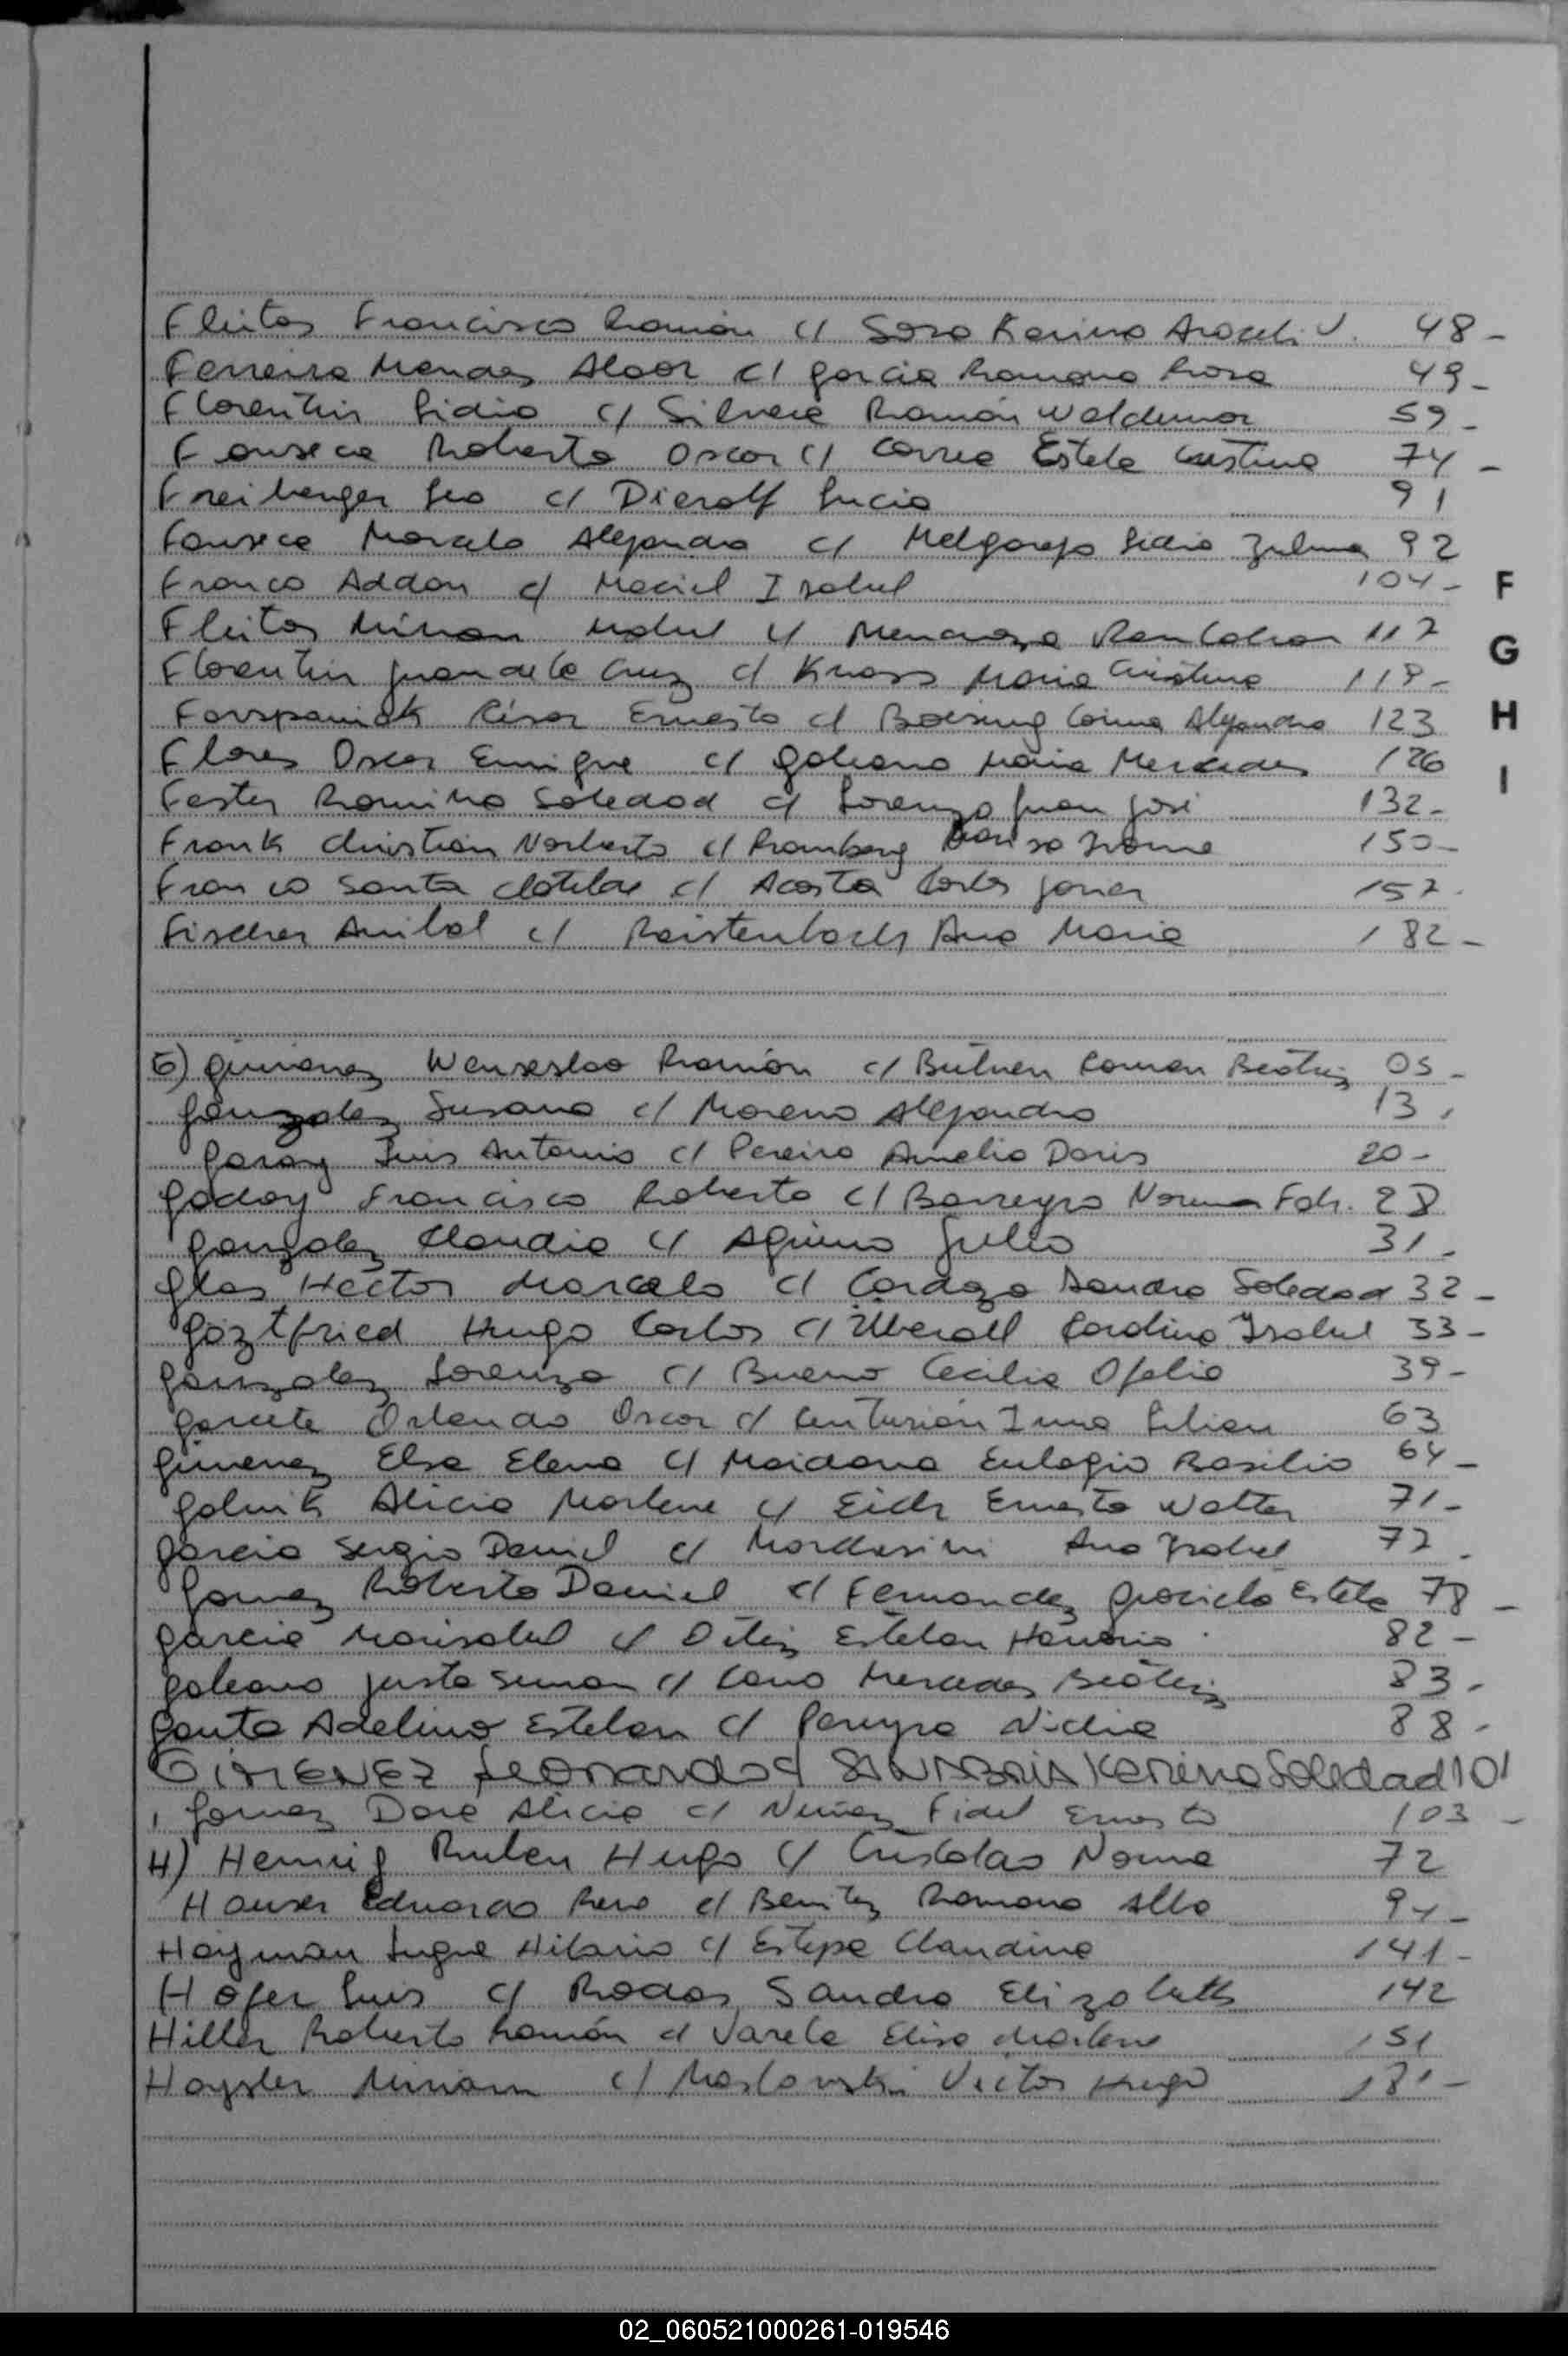 Fleitas Francisco Ramón c/ Sosa Karina Araceli V. 48-
Ferreira Mendes Alaor c/ Garcia Ramona Rosa 49-
Florentin Lidia c/ Silvera Ramón Waldemar 59-
Fonseca Roberto Oscar c/ Correa Estela Cristina 74-
Freiberger Leo c/ Dierolf Lucia 91
Fonseca Marcelo Alejandro c/ Melgarejo Lidia Zulma 92
Franco Addon c/ Maciel Isabel 104-
Fleitas Mirian Mabel c/ Mendoza 117
Florentin Juan de la Cruz c/ Knass Maria Cristina 119-
Cesar Ernesto c/ Boesing Corina Alejandra 123
Flores Oscar Enrique c/ Galeano Maria Mercedes 126
Fester Romina Soledad c/ Lorenzo Juan José 132-
Frank Christian Norberto c/ Ramberg Ivonne 150-
Franco Santa Clotilde c/ Acosta Carlos Javier 157-
Fischer Anibal c/ Ana Maria 182-
G) Gimenez Wenseslao Ramón c/ Butner Carmen Beatriz 05-
Gonzalez Susana c/ Moreno Alejandro 13,
Garay Luis Antonio c/ Pereira Amelia Doris 20-
Godoy Francisco Roberto c/ Barreyro Norma Fab. 28
Gonzalez Claudia c/ Aquino Julio 31.
Glas Hector Marcelo c/ Cardozo Sandra Soledad 32-
Goztfried Hugo Carlos c/ Uberall Carolina Isabel 33-
Gonzalez Lorenzo c/ Bueno Cecilia Ofelia 39-
Garcete Orlando Oscar c/ Centurión Irma Lilian 63
Gimenez Elsa Elena c/ Maidana Eulogio Basilio 64-
Golnik Alicia Marlene c/ Eich Ernesto Walter 71-
Garcia Sergio Daniel c/ Marchesini Ana Isabel 72.
Gomez Roberto Daniel c/ Fernandez Graciela Estela 78-
Garcia Marisabel c/ Ortiz Esteban Honorio 82-
Galeano Justo Simon c/ Cano Mercedes Beatriz 83-
Gauto Adelino Esteban c/ Pereyra Nidia 88-
GIMENEZ Leonardo c/ Karina Soledad 101
Gomez Dora Alicia c/ Nuñez Fidel Ernesto 103-
H) Hennig Ruben Hugo c/ Cristaldo Norma 72
Hauser Eduardo Rene c/ Benitez Ramona Alba 94-
Hayman Hilario c/ Estepa Claudina 141-
Hofer Luis c/ Rodas Sandra Elizabeth 142
Hiller Roberto Ramón c/ Varela Elisa Marlene 151
Hayster Miriam c/ Maslowski Victor Hugo 181-
F
G
H
I
02_060521000261-019546